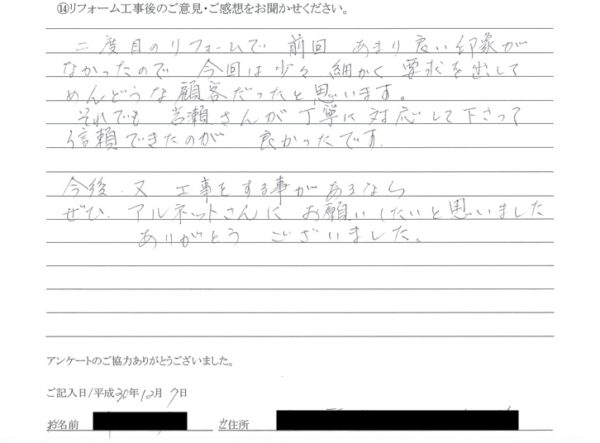 ⑭リフォーム工事後のご意見・ご感想をお聞かせください。
二度目のリフォームで 前回 あまり良い印象が
なかったので 今回は少々 細かく 要求を出して
めんどうな顧客だったと思います。
それでも 岩瀬さんが丁寧に対応して下さって
信頼できたのが 良かったです.
今後.又 工事をする事があるなら
ぜひ.アルネットさんに お願いしたいと思いました
ありがとう ございました。
アンケートのご協力ありがとうございました。
ご記入日/平成30年12月7日
お名前
ご住所